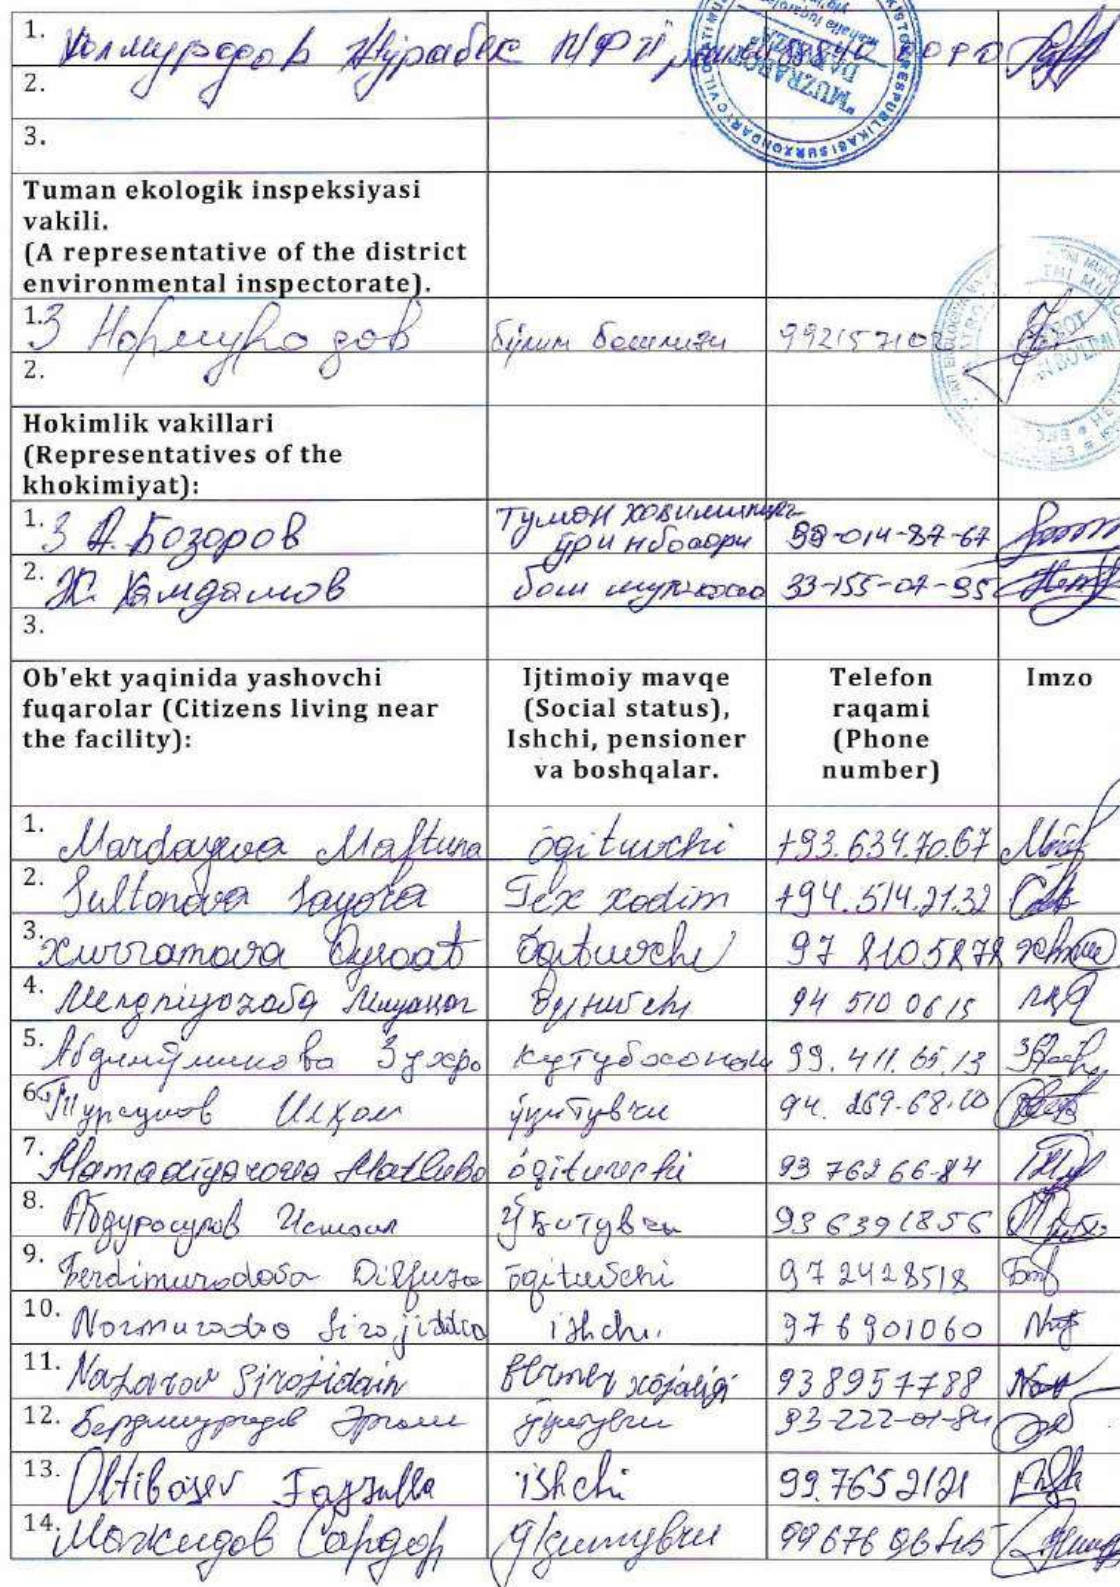 1. Холмуродов Жўрабек МФЙ
2.
3.
Tuman ekologik inspeksiyasi
vakili.
(A representative of the district
environmental inspectorate).
1. З Нормуродов бўлим бошлиғи 992157102
2.
Hokimlik vakillari
(Representatives of the
khokimiyat):
1. З А. Бозоров Туман ҳокимининг
ўринбосари 99-014-87-67
2. Ж. Хамдамов бош мутахасс 33-155-07-95
3.
Ob'ekt yaqinida yashovchi
fuqarolar (Citizens living near
the facility):
Ijtimoiy mavqe
(Social status),
Ishchi, pensioner
va boshqalar.
Telefon
raqami
(Phone
number)
Imzo
1. Mardayeva Maftuna o'qituvchi +93.634.70.67
2. Sultonova Sayora Tex xodim +94.514.21.32
3. Xurramova Oysoat o'qituvchi 97 8105878
4. Mengniyozova 94 510 06 15
5. Зухро кутубхоначи 99. 411. 65. 13
6. Турсунов Илҳом ўқитувчи 94. 269-68-20
7. Mamadiyarova Matluba o'qituvchi 93 762 66-84
8. Абдурасулов Исмоил Ўқитувчи 936391856
9. Berdimurodova Dilfuza o'qituvchi 972428518
10. Normurodov Sirojiddin ishchi. 976901060
11. Nazarov Sirojidain fermer xo'jaligi 938957788
12. Бердимуродов ўқитувчи 93-222-01-84
13. Oltiboyev Fayzulla ishchi 99.7652121
14. Сардор ўқитувчи